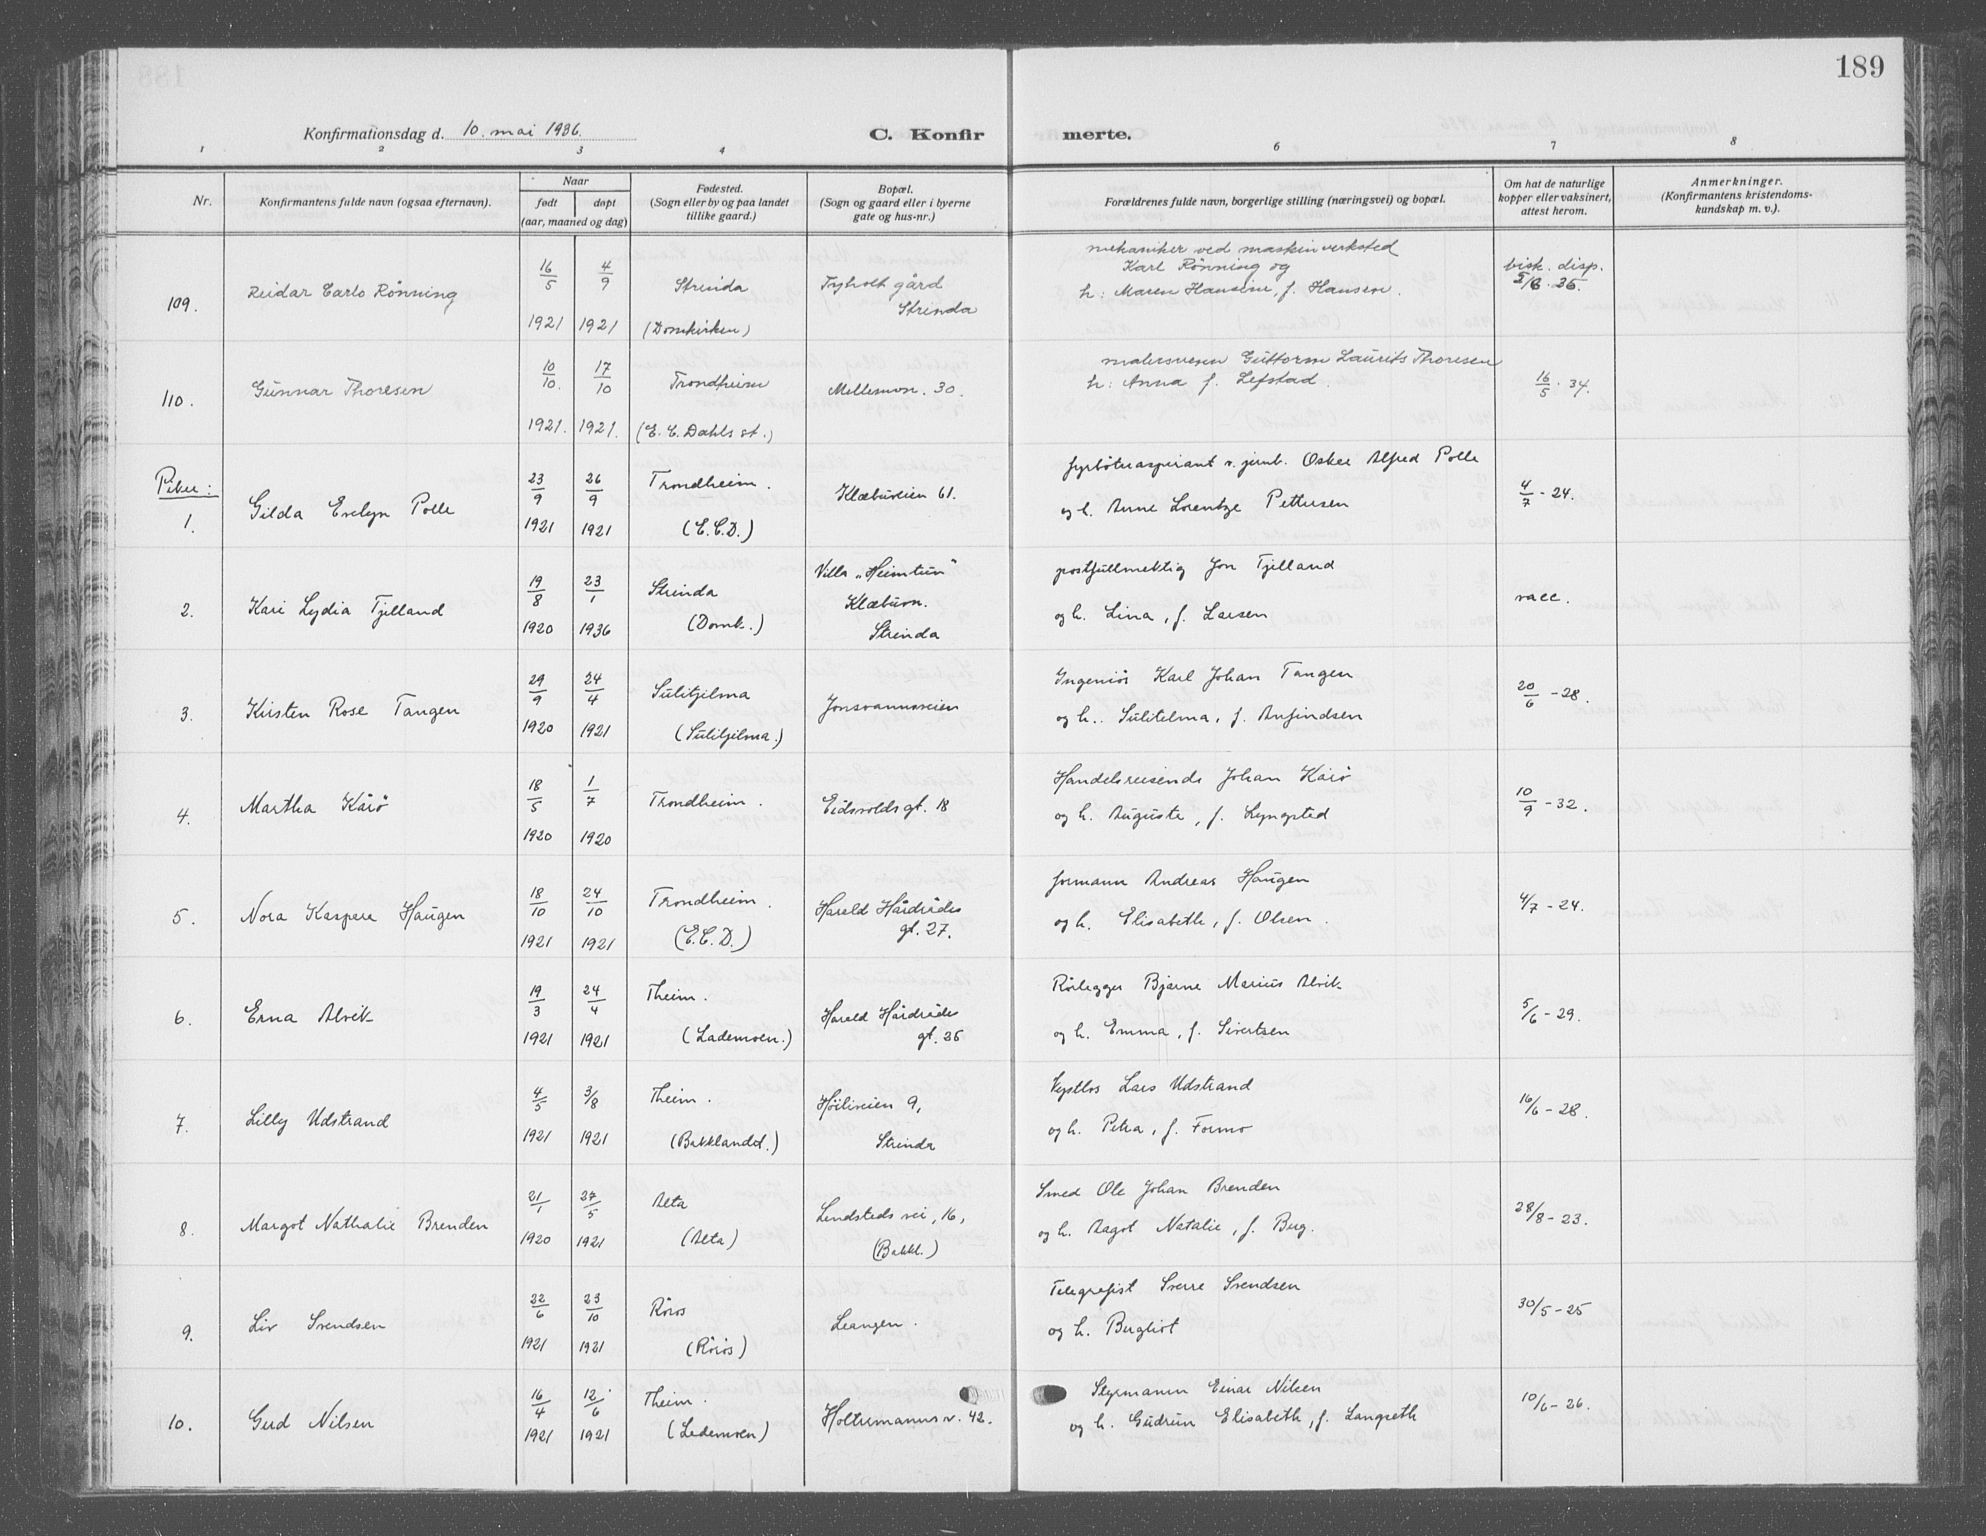 189
Konfirmationsdag d. 10. mai 1936.
C. Konfir
merte.
1 2 3 4 6 7 8
Nr.
Konfirmantens fulde navn (ogsaa efternavn).
Naar
født
døpt
(aar, maaned og dag)
Fødested.
(Sogn eller by og paa landet
tillike gaard.)
Bopæl.
(Sogn og gaard eller i byerne
gate og hus-nr.)
Forældrenes fulde navn, borgerlige stilling (næringsvei) og bopæl.
Om hat de naturlige
kopper eller vaksinert,
attest herom.
Anmerkninger.
(Konfirmantens kristendoms-
kundskap m. v.).
109. Reidar Carlo Rønning
16/5 1921
4/9 1921
Strinda
(Domkirken)
Tyholt gård
Strinda
mekaniker ved maskinverksted
Karl Rønning og
h: Maren Hansine, f. Hansen.
bisk. disp.
110. Gunnar Thoresen
10/10. 1921.
17/10 1921.
Trondheim
(E. C. Dahls st.)
Mellemvn. 30.
malersvenn Guttorm Laurits Thoresen
h: Anna f. Lefstad.
16/5. 34.
Piker:
1. Gilda Evelyn Polle
23/9 1921
26/9 1921
Trondheim.
(E.C.D.)
Klæbuveien 61.
fyrbøteraspirant v. jernb. Oskar Alfred Polle
og h. Anne Lorentze Pettersen
4/7 - 24.
2. Kari Lydia Tjelland
19/8 1920
23/1 1936
Strinda
(Domk.)
Villa "Heimtun"
Klæbuvn.
Strinda
postfullmektig Jon Tjelland
og h. Lina, f. Larsen
vacc.
3. Kirsten Rose Tangen
29/9 1920
24/4 1921
Sulitjelma
(Sulitjelma.)
Jonsvannsveien
Ingeniør Karl Johan Tangen
og h. Sulitelma, f. Anfindsen
20/6 - 28.
4. Martha Kårø
18/5 1920
1/7 1920
Trondheim.
Eidsvolds gt. 18
Handelsreisende Johan Kårø
og h. Auguste, f. Lyngsted
10/9 - 32.
5. Nora Kaspara Haugen
18/10 1921
24/10 1921
Trondheim.
(E.C.D.)
Harald Hårdrådes
gt. 27.
formann Andreas Haugen
og h. Elisabeth, f. Olsen.
4/7 - 24.
6. Erna Alvik
19/3 1921
24/4 1921
Theim.
(Lademoen.)
Harald Hårdrådes
gt. 25
Rørlegger Bjarne Marius Alvik
og h. Emma, f. Sivertsen
5/6 - 29.
7. Lilly Udstrand
4/5 1921
3/8 1921
Theim.
(Bakklandet.)
Høiliveien 9,
Strinda
Lars Udstrand
og h. Petra, f. Formo
16/6 - 28.
8. Margot Nathalie Brenden
21/1 1920
27/5 1921
Alta
(Alta)
Lundsteds vei, 16,
(Bakkl.)
Smed Ole Johan Brenden
og h. Aagot Natalie, f. Berg.
28/8 - 23.
9. Liv Svendsen
22/6 1921
23/10 1921
Røros
(Røros)
Leangen.
Telegrafist Sverre Svendsen
og h. Bergliot
30/5 - 25
10. Gerd Nilsen
16/4 1921
12/6 1921
Theim.
(Lademoen)
Holtermanns v. 42.
Styrmann Einar Nilsen
og h. Gudrun Elisabeth, f. Langseth
10/6 - 26.